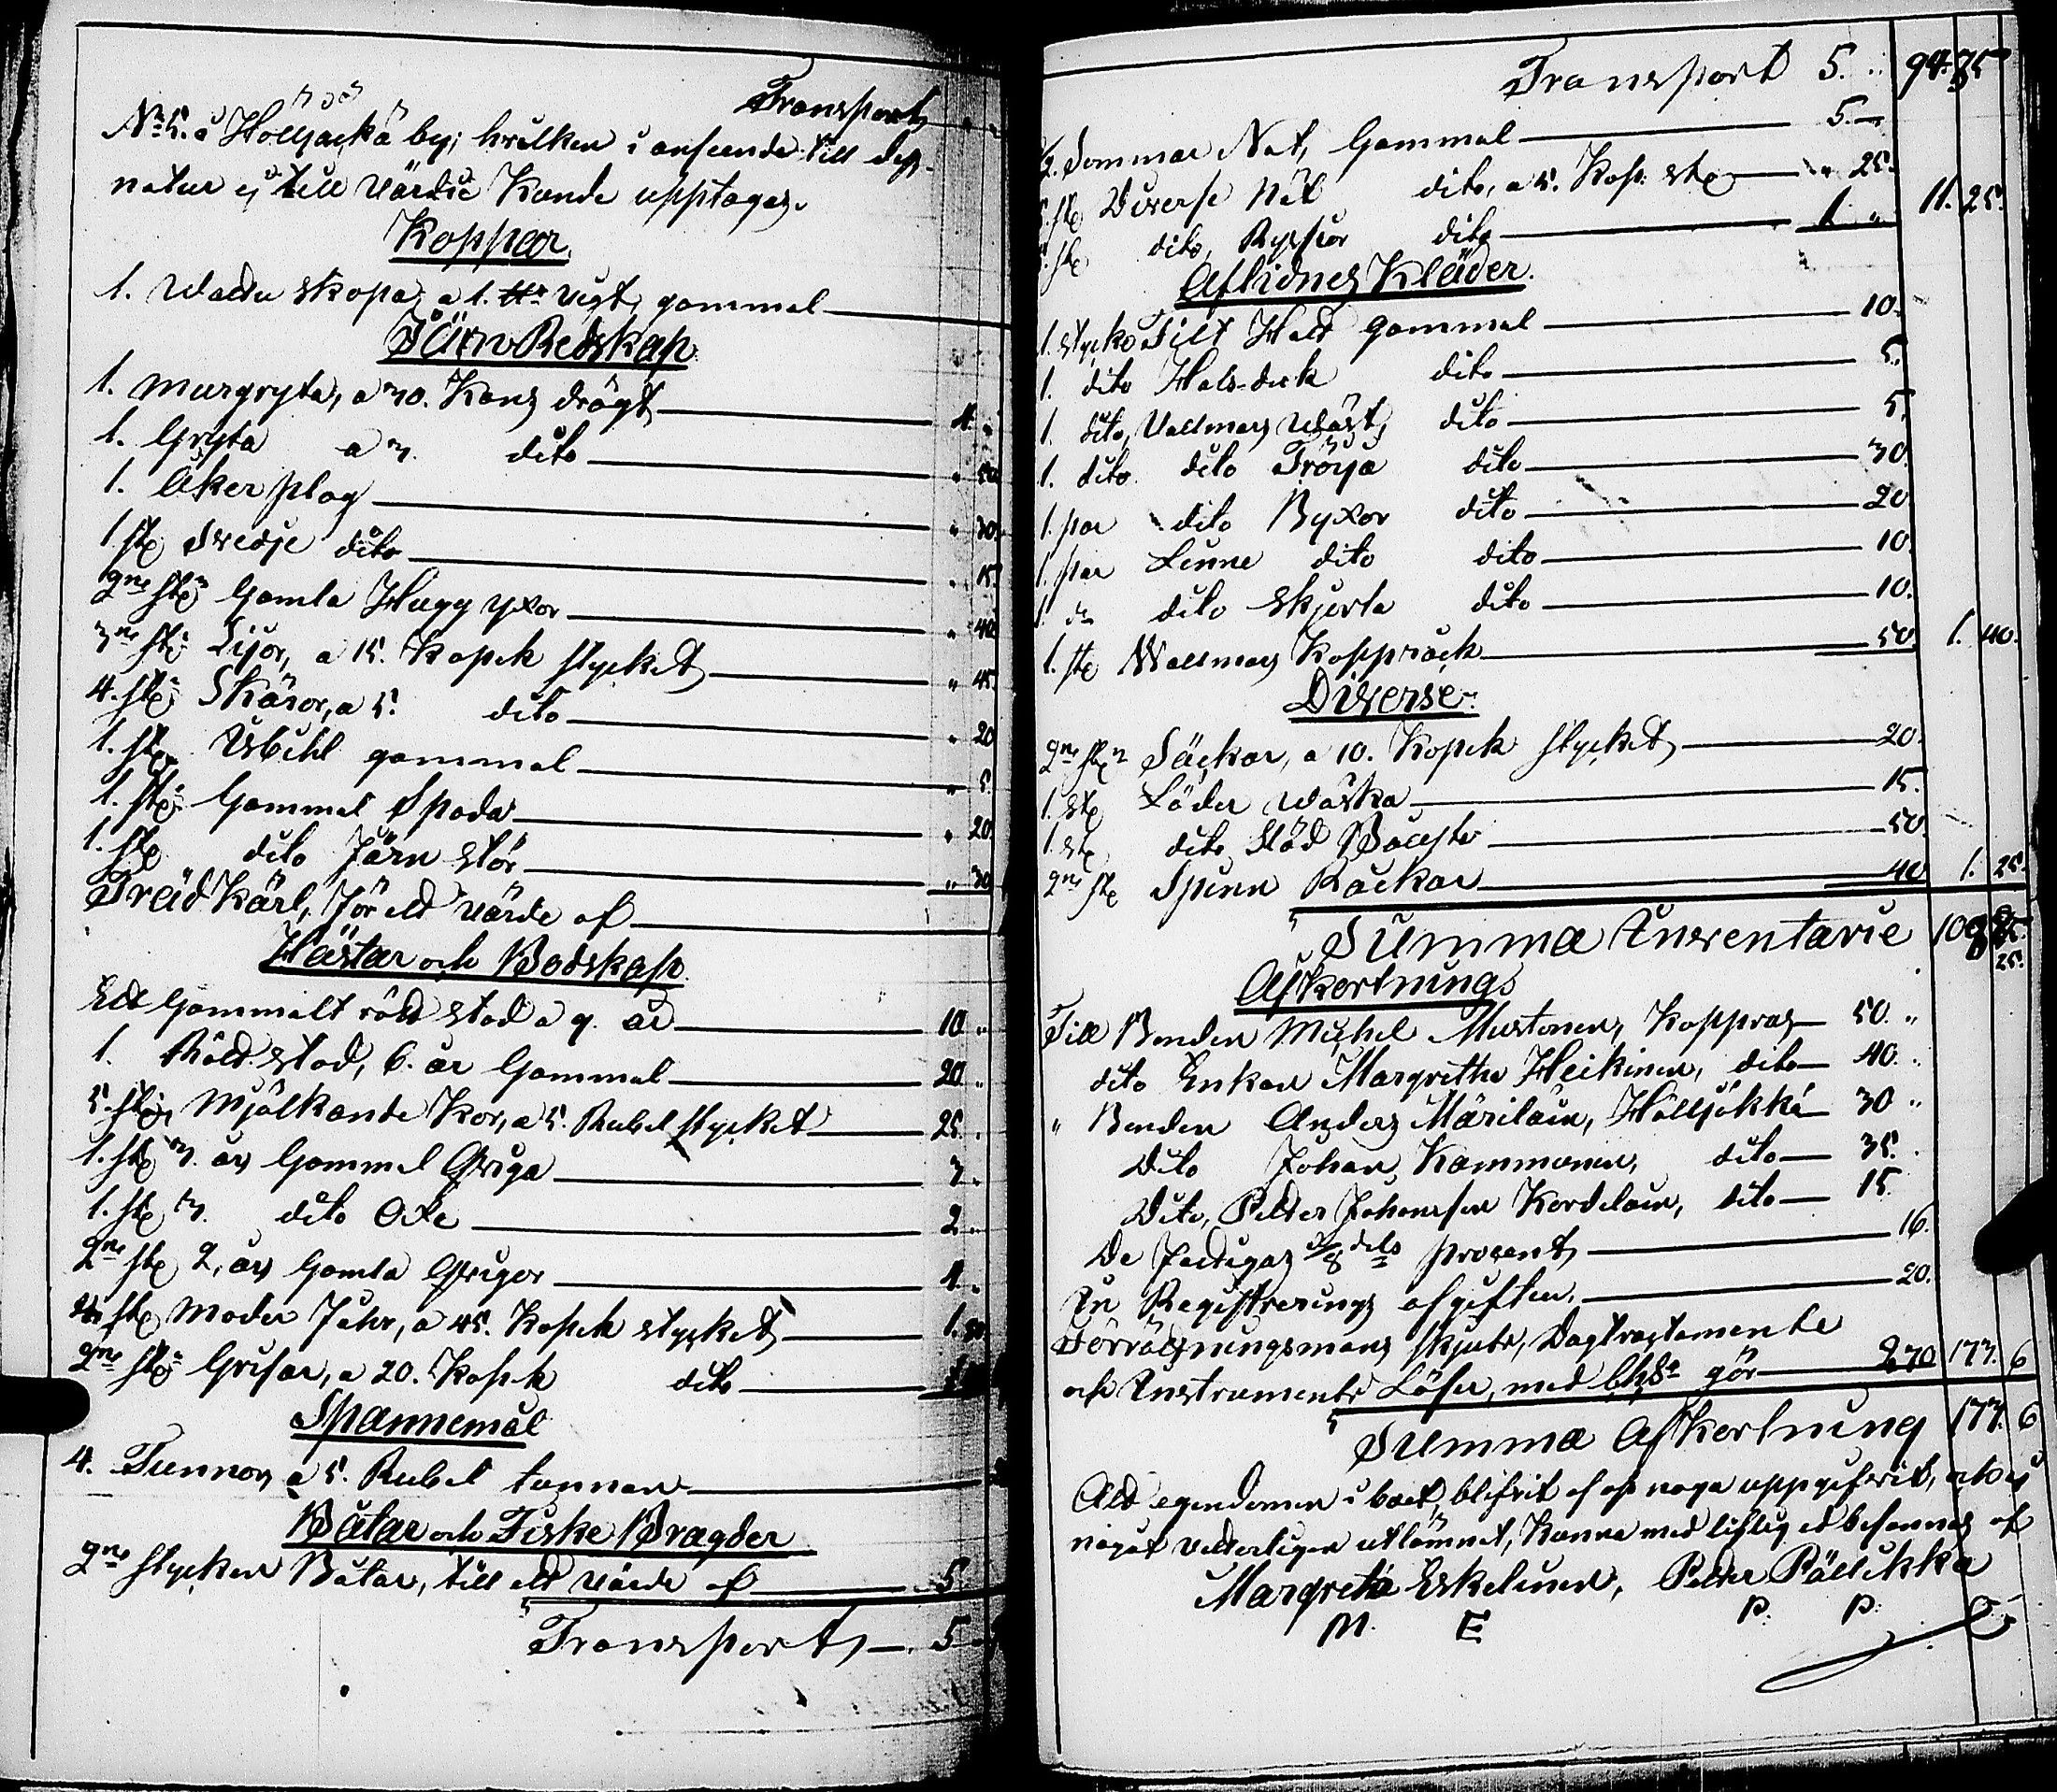 Transport
N=o 5. i Holljackä by; hvilken i anseende till dess
natur ej till värde Kunde upptagas.
Koppar
1. Watu skopa, a 1. vigt, gammal
Järn Redskap
1. murgryta, a 30. Kans drägt 4. "
1. Gryta a 3. dito " 50.
1. Åker plog " 30.
1. st Svedje dito " 15.
2ne st Gamla Hugg yxor " 40.
3ne st Lijor, a 15. Kopek stycket " 45.
4. st Skäror, a 5. dito " 20
1. st Wbihl gammal " 5.
1. st Gammal Spada " 20.
1. st dito Järn stör " 30
Träd Kärl, för ett värde af
Hästar och Bodskap
Ett Gammalt rödt stod a 9. år 10 "
1. Röd stod, 6. år Gammal 20 "
5. st Mjölkande Kor, a 5. Rubel stycket 25. "
1. st 3. års Gammal Qviga 3. "
1. st 3. dito Oxe 2 "
2ne st 2, års Gamla Qvigor 4 "
4. st Moder Fåhr, a 45. Kopek stycket 1. 80
2ne st Grisar, a 20. Kopek dito
Spannemål
4. Tunnor, a 5. Rubel tunnan
Båtar och Fiske Bragder
2ne stycken Båtar, till ett värde af 5
Transport 5
Transport 5. " 94. 75
1/2 Sommar Not, Gammal 5. "
5. st Diverse Nät dito, a 5. Kop. st " 25.
st dito, Ryssior dito 1 " 11. 25.
Aflidnes Kläder.
1. stycke Filt Hatt gammal 10.
1. dito Hals-duk dito 5.
1. dito, Vallmars Wäst, dito 5.
1. dito dito Tröija dito 30.
1. par dito Byxor dito 20
1. par Linne dito dito 10.
1. do dito Skjorta dito 10.
1. st Wallmars Kapprock 50. 1. 40.
Diverse.
2ne st Säckar, a 10. Kopek stycket 20.
1. st Läder Wäska 15.
1. st dito, Stöd 50.
2ne st Spinn Råckar 40 1. 25.
Summa Inventarie 108
25.
Afkortnings
Till Bonden Michel Mustonen, Koppras 50. "
dito Enkan Margretha Heikinen, dito 40. "
" Bonden Anders Märiläin, Hålljökkä 30 "
Dito Johan Kammonen, dito 35. "
Dito, Petter Johansson Kordelain, dito 15.
De Fattigas 1/8 dels procent 16.
In Registrerings afgiften. 20.
Förrättningsmans skjuts, Dagtractamente
och Instruments Lösen, med gör 2 70 173. 6
Summa Afkortning 173. 6
Att egendomen i boet blifvit af oss noga uppgifvit, och ej
något vetterligen utlämnat, Kunna med liflig ed besannas af
Margreta Eskelinen, Petter Pällikkä
M. E P. P.